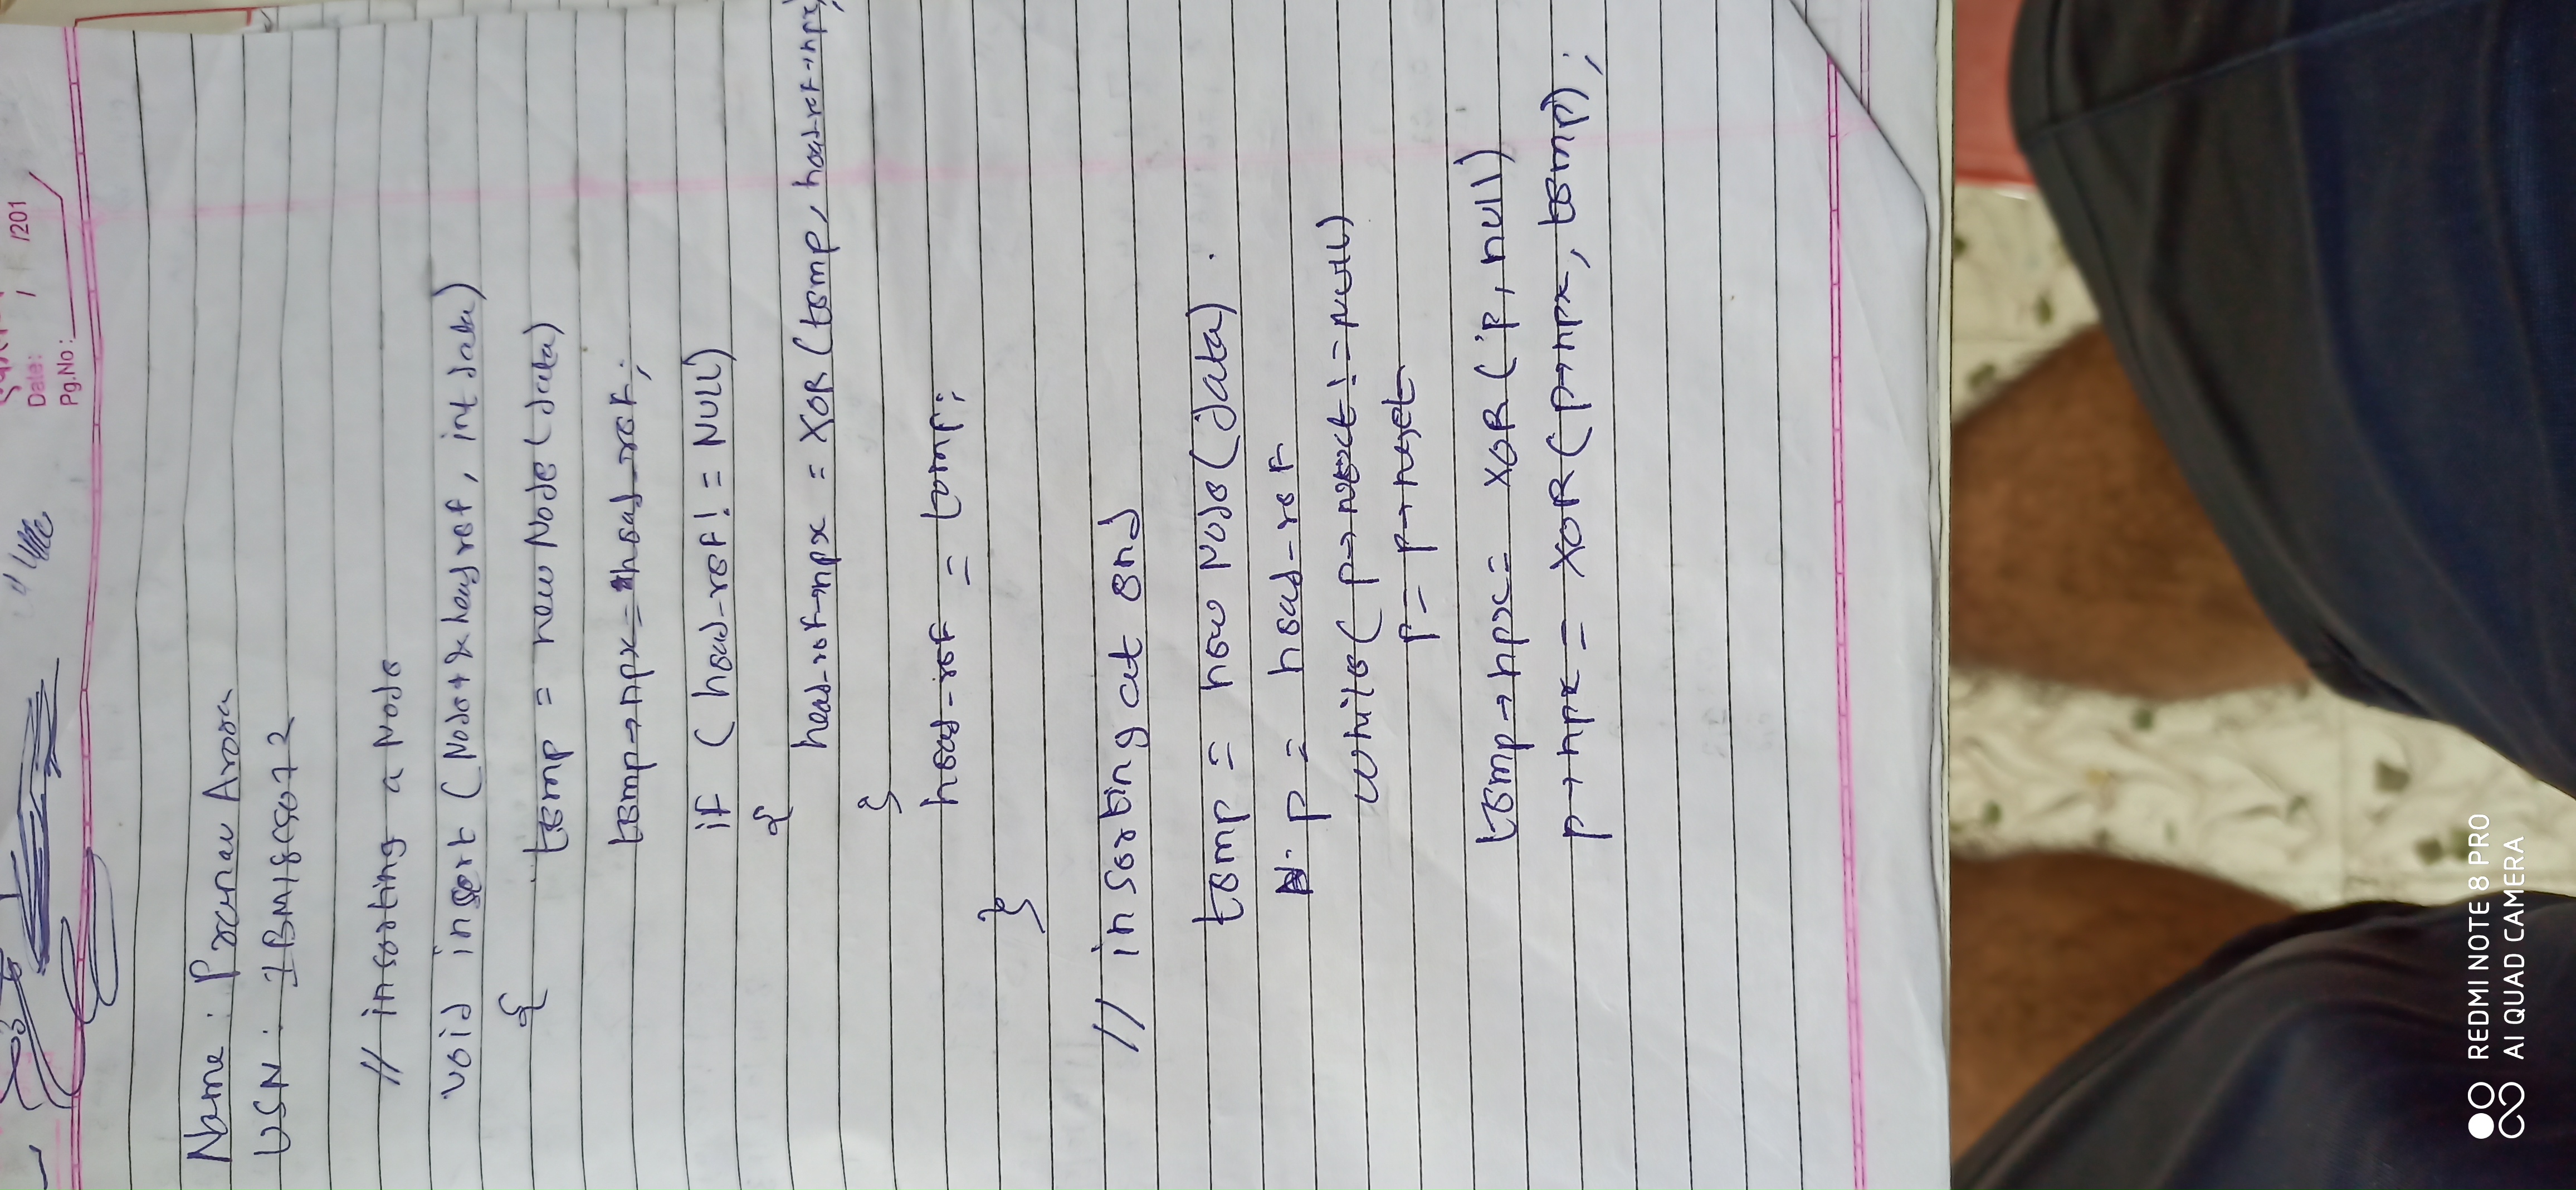 Date: / /201
Pg.No:
Name: Pranav Arora
USN: 1BM18CS072
// inserting a Node
void insert (Node* &head_ref, int data)
{ temp = new Node(data)
temp→npx = head_ref;
if (head_ref != NULL)
{
head_ref→npx = XOR(temp, head_ref→npx);
}
head_ref = temp;
}
// inserting at end
temp = new Node(data).
p = head_ref
while(p→next != NULL)
p = p→next
temp→npx = XOR(p, null)
p→npx = XOR(p→npx, temp);
REDMI NOTE 8 PRO
AI QUAD CAMERA